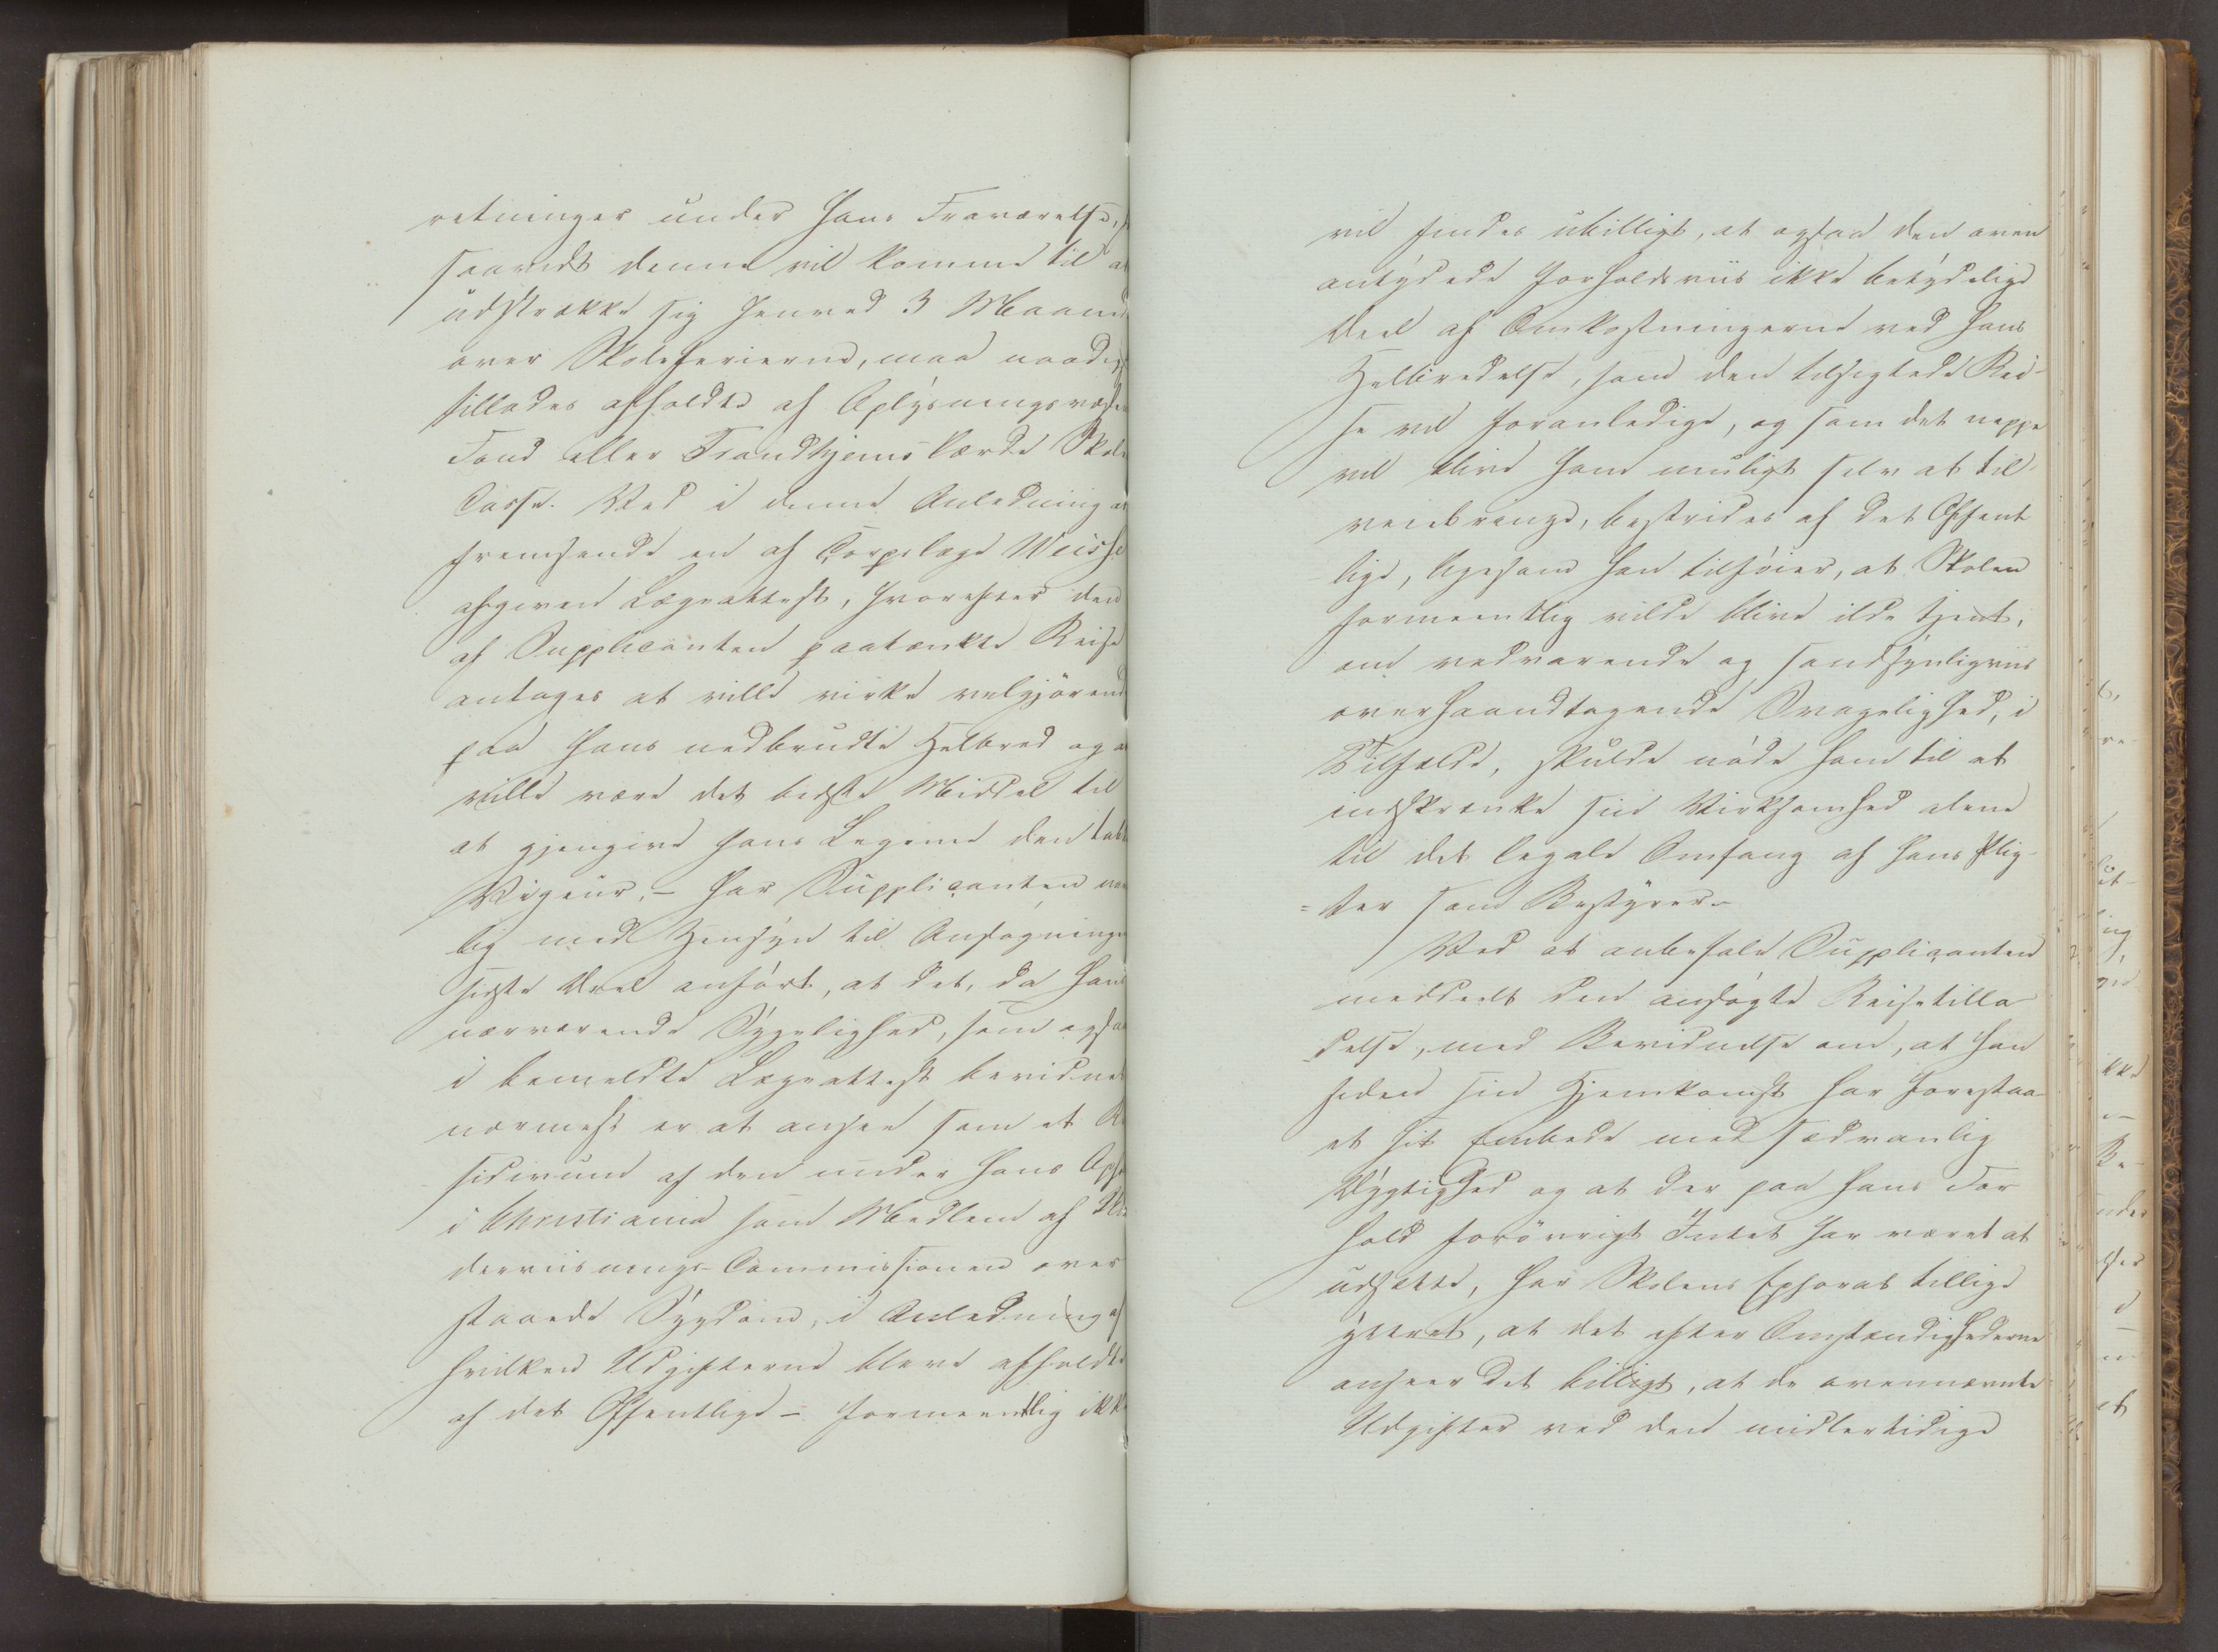 retninger under hans Fraværelse,
saavidt denne vil komme til at
udstrække sig henved 3 Maaned
over Skoleferierne, maa naadigst
tillades afholdte af Oplysningsvæsen
Fond eller Trondhjems lærde Skole
Casse. Ved i denne Anledning at
fremsende en af Corpslæge Weisse
afgiven Lægeattest, hvorefter den
af Supplicanten paatænkte Reise
antages at ville virke velgjörende
paa hans nedbrudte Helbred og at
ville være det bedste Middel til
at gjengive hans Legeme den tabte
Vigeur, - har Supplicanten nem
lig med Hensyn til Ansøgningens
sidste Deel anført, at det, da hans
nærværende Sygelighed, som ogsaa
i bemeldte Lægeattest bevidnes
nærmest er at ansee som et Re
sidivum af den under hans Oph
i Christiania som Medlem af Un
derviisnings-Commissionen over
staaede Sygdom, i Anledning af
hvilken Udgifterne bleve afholdte
af det Offentlige - formeentlig ikke
vil findes ubilligt, at ogsaa den oven
antydede forholdsviis ikke betydelige
Deel af Omkostningerne ved hans
Helbredelse, som den tilsigtede Rei-
se vil foranledige, og som det neppe
vil blive ham muligt selv at til
veiebringe, bestrides af det Offent
lige, ligesom han tilføier, at Skolen
formeentlig vilde blive ilde tjent,
om vedvarende og sandsynligviis
overhaandtagende Svagelighed, i
Tilfælde, skulde nöde ham til at
indskrænke sin Virksomhed alene
til det legale Omfang af hans Plig-
=ter som Bestyrer.-
Ved at anbefale Supplicanten
meddeelt den ansøgte Reisetilla
delse, med Bevidnelse om, at han
siden sin Hjemkomst har forestaa-
et sit Embede med sædvanlig
Dygtighed og at der paa hans For
hold forövrigt Intet har været at
udsætte, har Skolens Ephorat tillige
yttret, at det efter Omstændighederne
anseer det billigt, at de ovennævnte
Udgifter ved den midlertidige